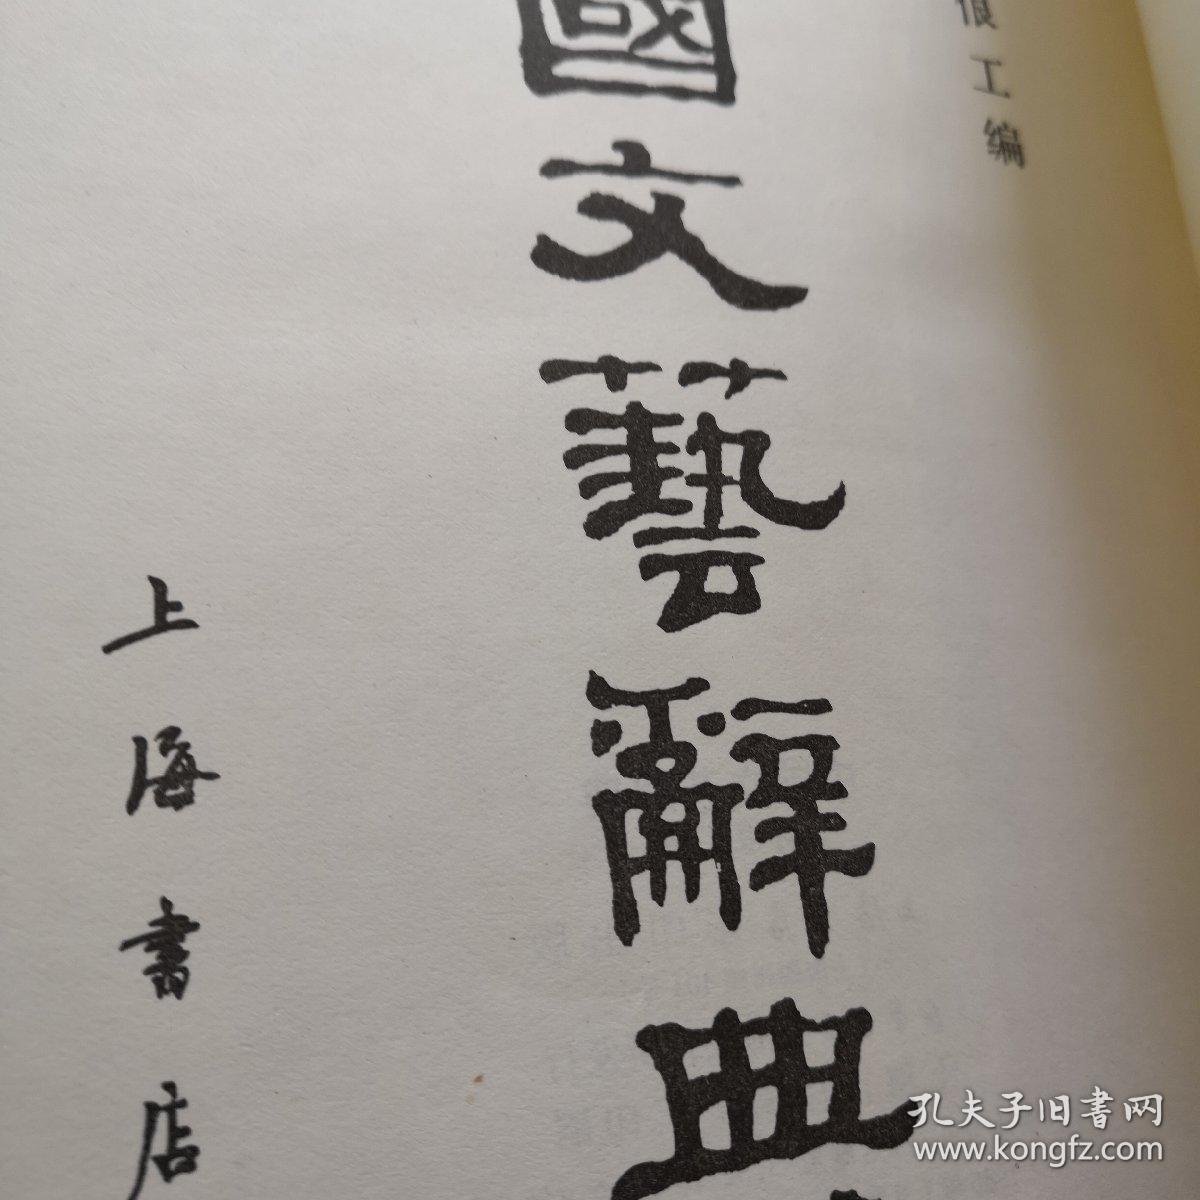 俍工编
國文藝辭典
上海書店
孔夫子旧書网
www.kongfz.com